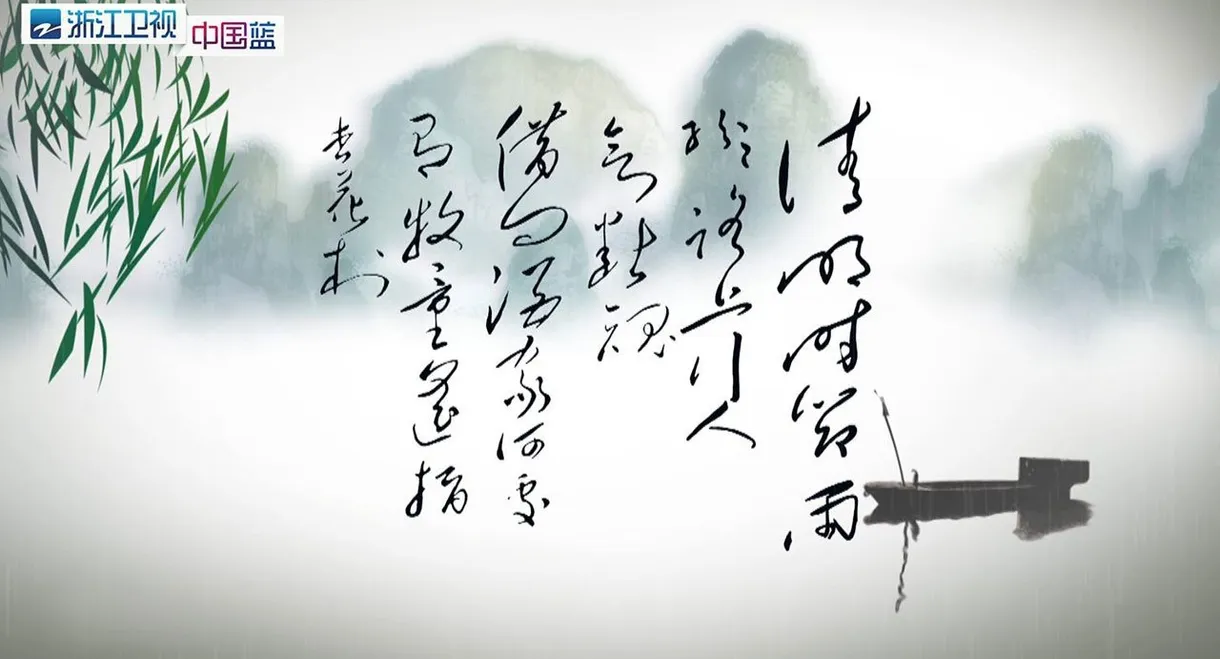 浙江卫视
中国蓝
清明时節雨
紛〻路上行人
欲斷魂
借问酒家何处
有牧童遙指
杏花村